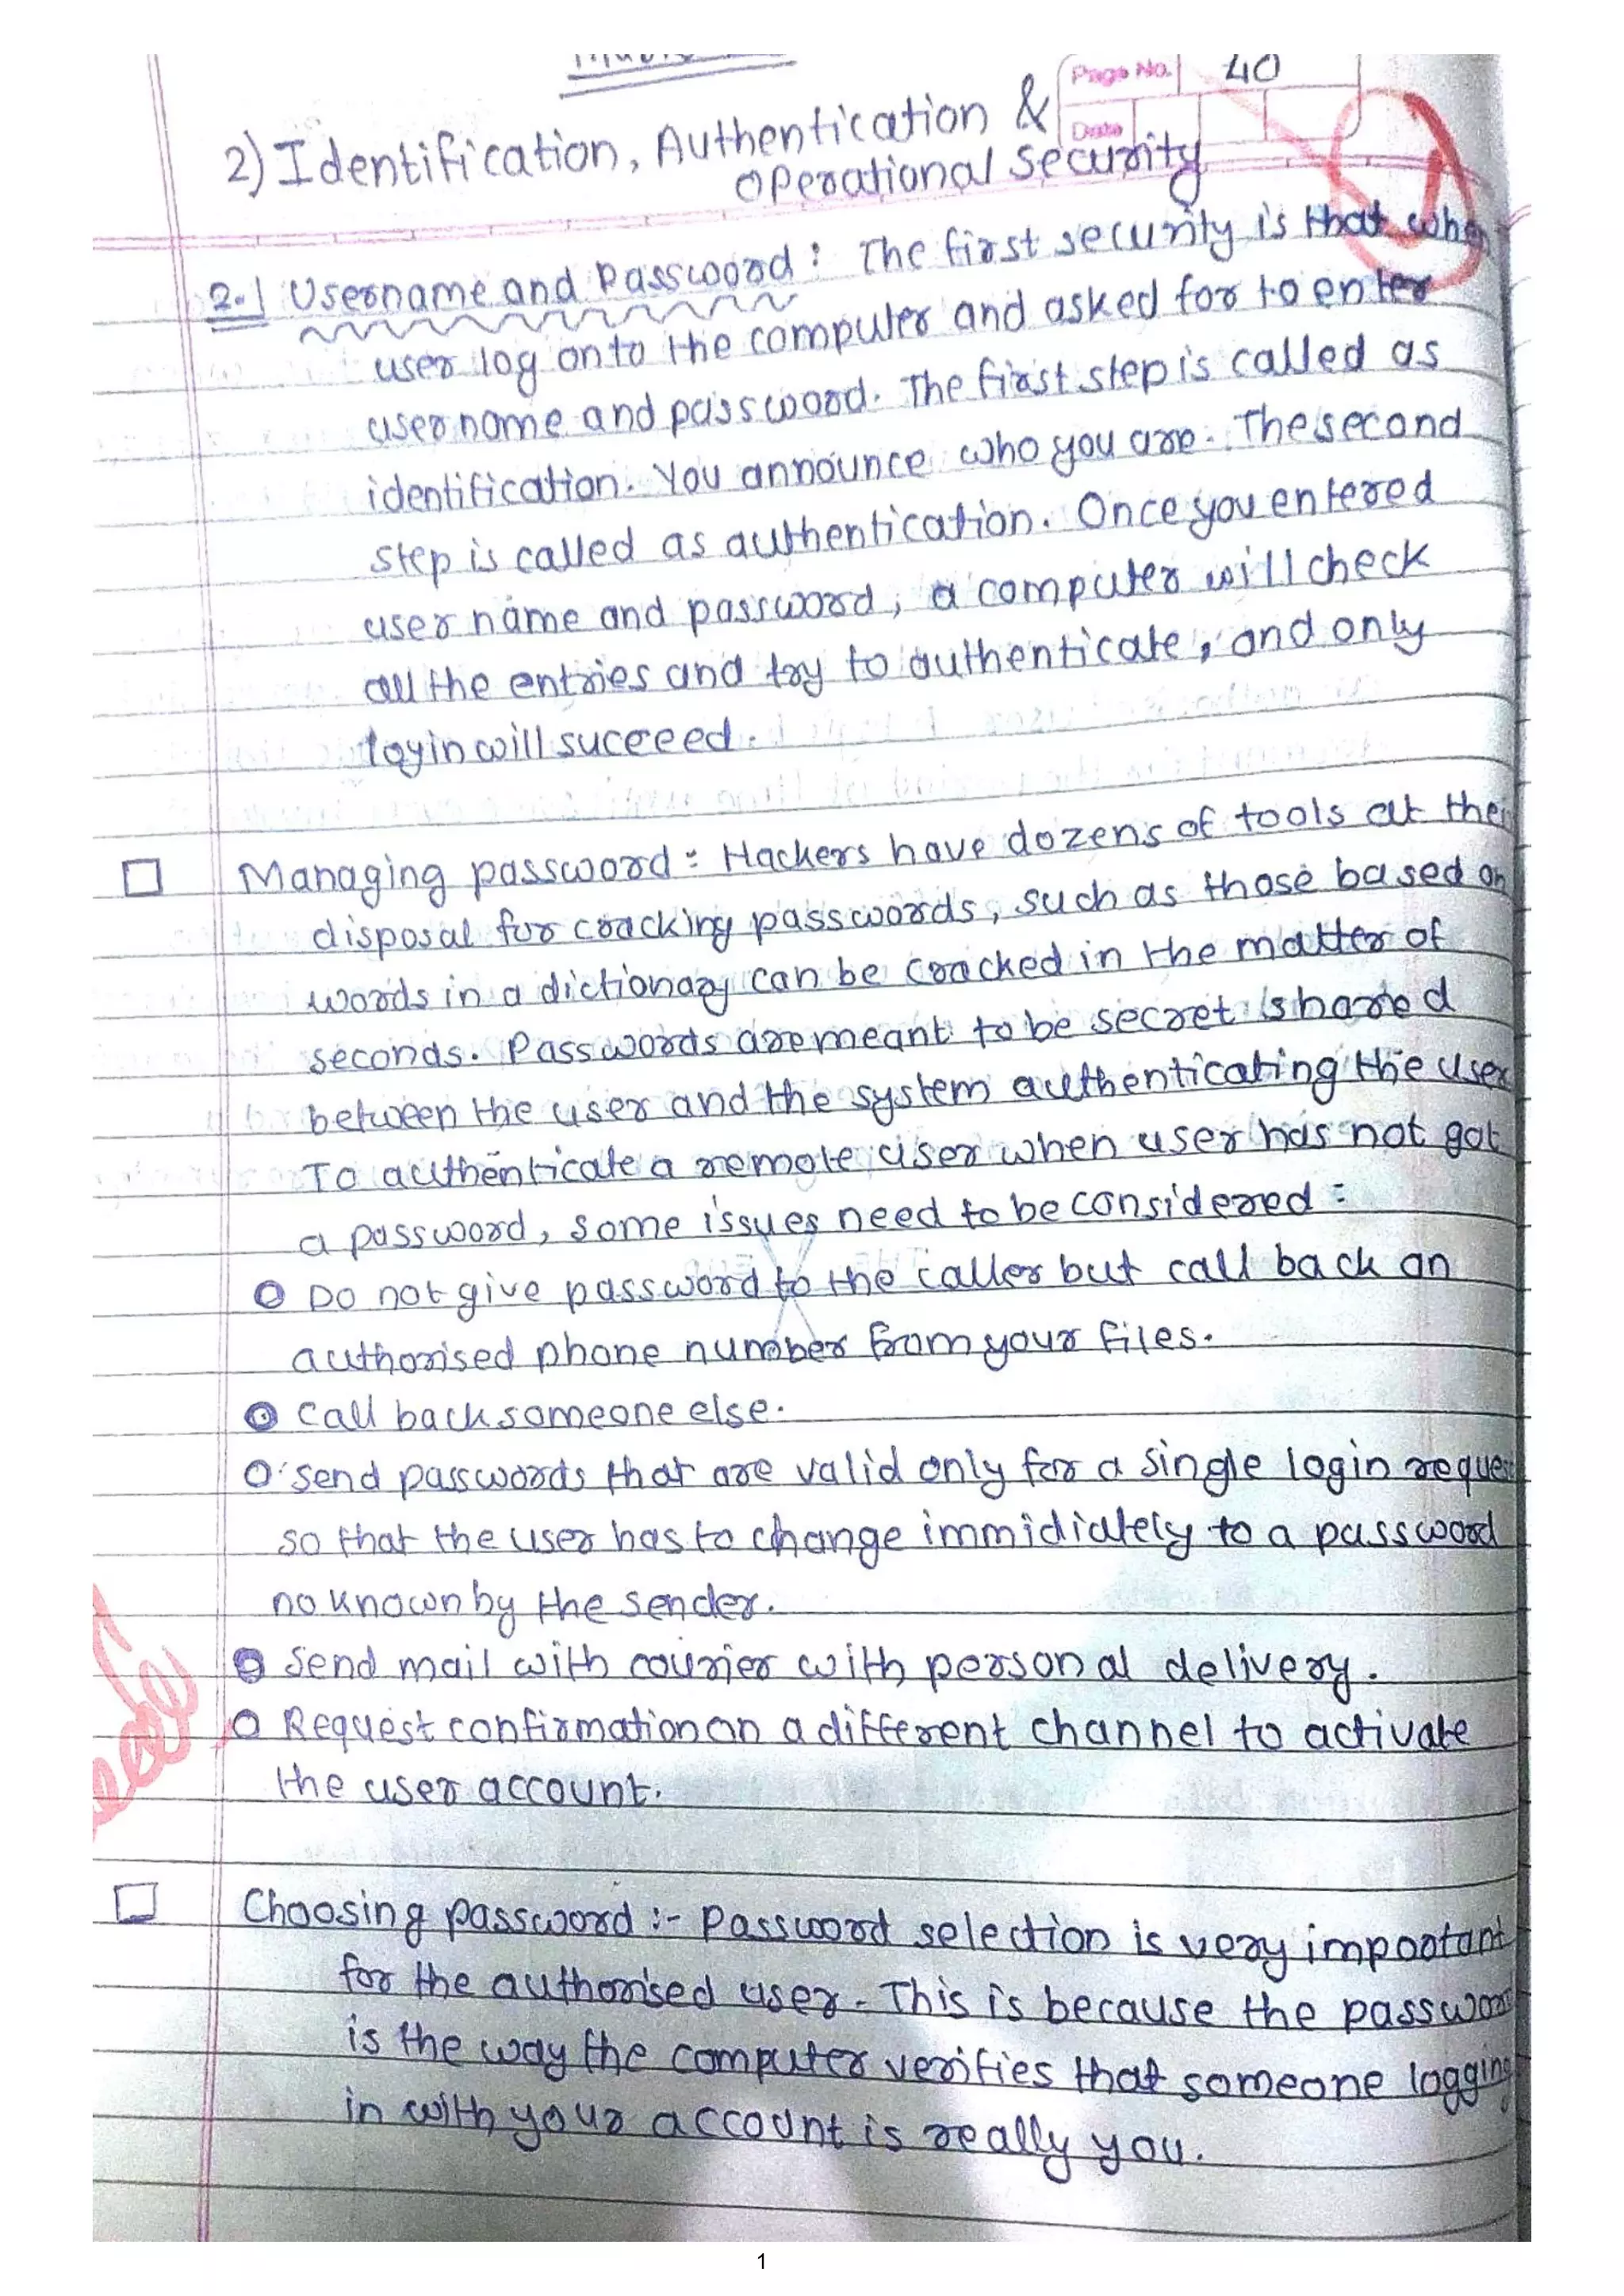 Page No. 40
Date
2) Identification, Authentication &
Operational Security
2.1 Username and Password : The first security is that when
user log onto the computer and asked for to enter
username and password. The first step is called as
identification. You announce who you are. The second
step is called as authentication. Once you entered
user name and password, a computer will check
all the entries and try to authenticate, and only
login will suceeed.
Managing password : Hackers have dozens of tools at the
disposal for cracking passwords, such as those based on
words in a dictionary can be cracked in the matter of
seconds. Passwords are meant to be secret shared
between the user and the system authenticating the user
To authenticate a remote user when user has not got
a password, some issues need to be considered :
Do not give password to the caller but call back an
authorised phone number from your files.
Call back someone else.
Send passwords that are valid only for a single login reques
so that the user has to change immidiately to a password
no known by the sender.
Send mail with courier with personal delivery.
Request confirmation on a different channel to activate
the user account.
Choosing password :- Password selection is very important
for the authorised user. This is because the password
is the way the computer verifies that someone logging
in with your account is really you.
1